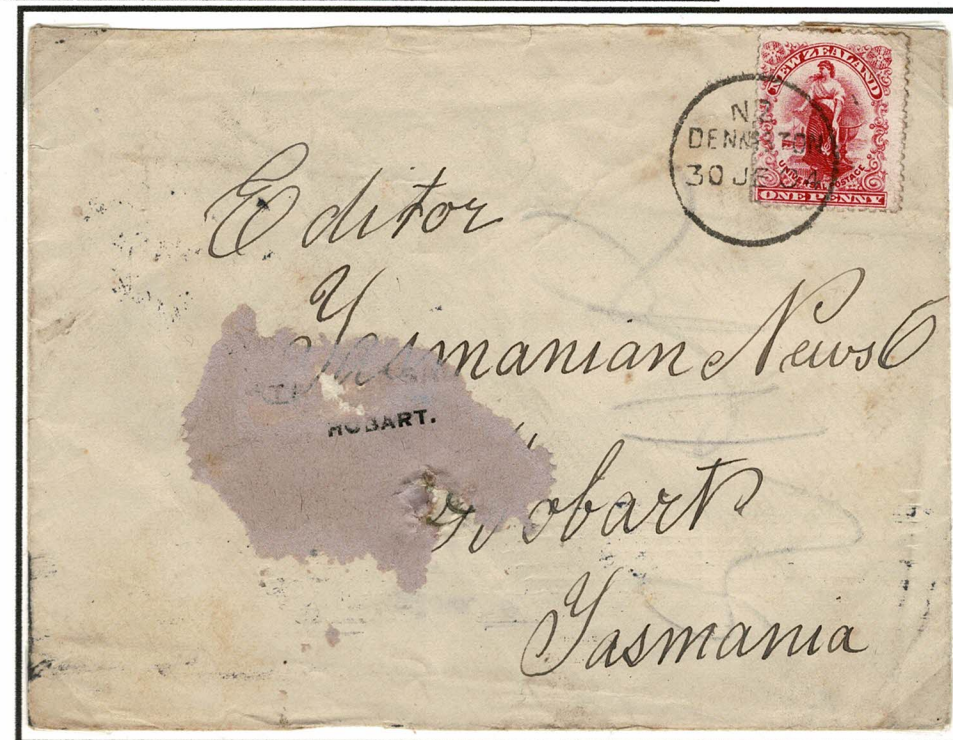 NEW ZEALAND
UNIVERSAL POSTAGE
ONE PENNY
NZ
DENNISTON
30 JE 04
Editor
Tasmanian News
Hobart
Tasmania
HOBART.